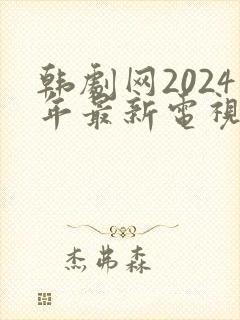 韩劇网2024
年最新電視
杰弗森